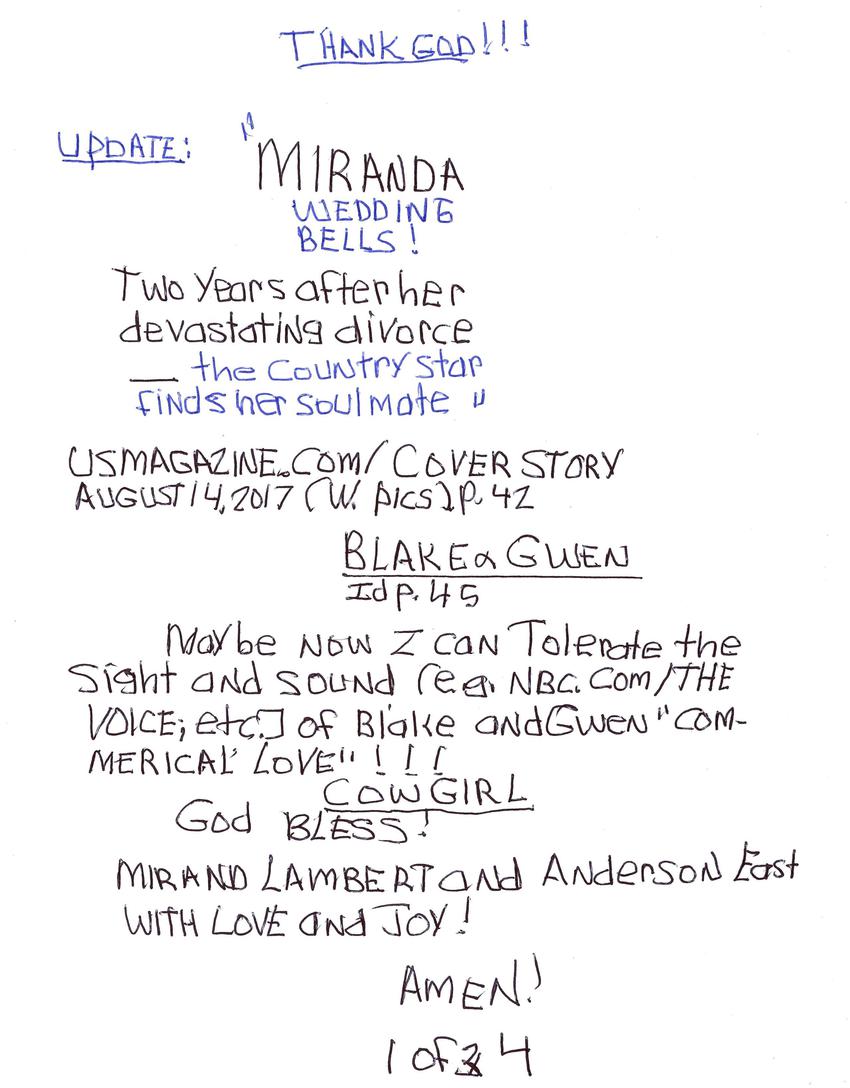 THANK GOD!!!
UPDATE: "MIRANDA
WEDDING
BELLS!
Two Years after her
devastating divorce
— the Country Star
finds her soulmate "
USMAGAZINE.COM/COVER STORY
AUGUST 14, 2017 (W. pics) p. 42
BLAKE & GWEN
Id p. 45
Maybe NOW I CAN Tolerate the
Sight and SOUND (e.g. NBC.COM/THE
VOICE; etc.] of Blake and Gwen "COM-
MERICAL' LOVE"!!!
COWGIRL
God BLESS!
MIRAND LAMBERT and Anderson East
WITH LOVE and JOY!
AMEN!
1 of 4